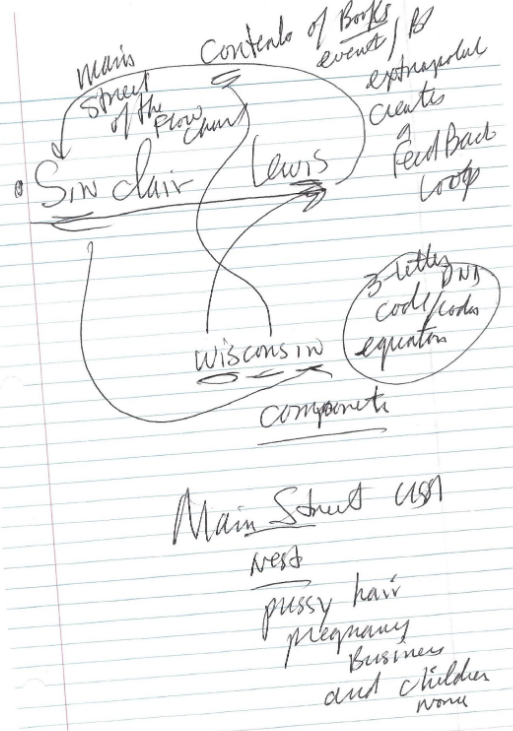 Contents of Books
event /
extrapolat
Creates
a
FeedBack
Loop
main
street
of the
Flow
Chart
Sinclair Lewis
3-letter DNA
code/codes
equation
wisconsin
components
Main Street USA
Nest
pussy hair
pregnancy
Business
and children